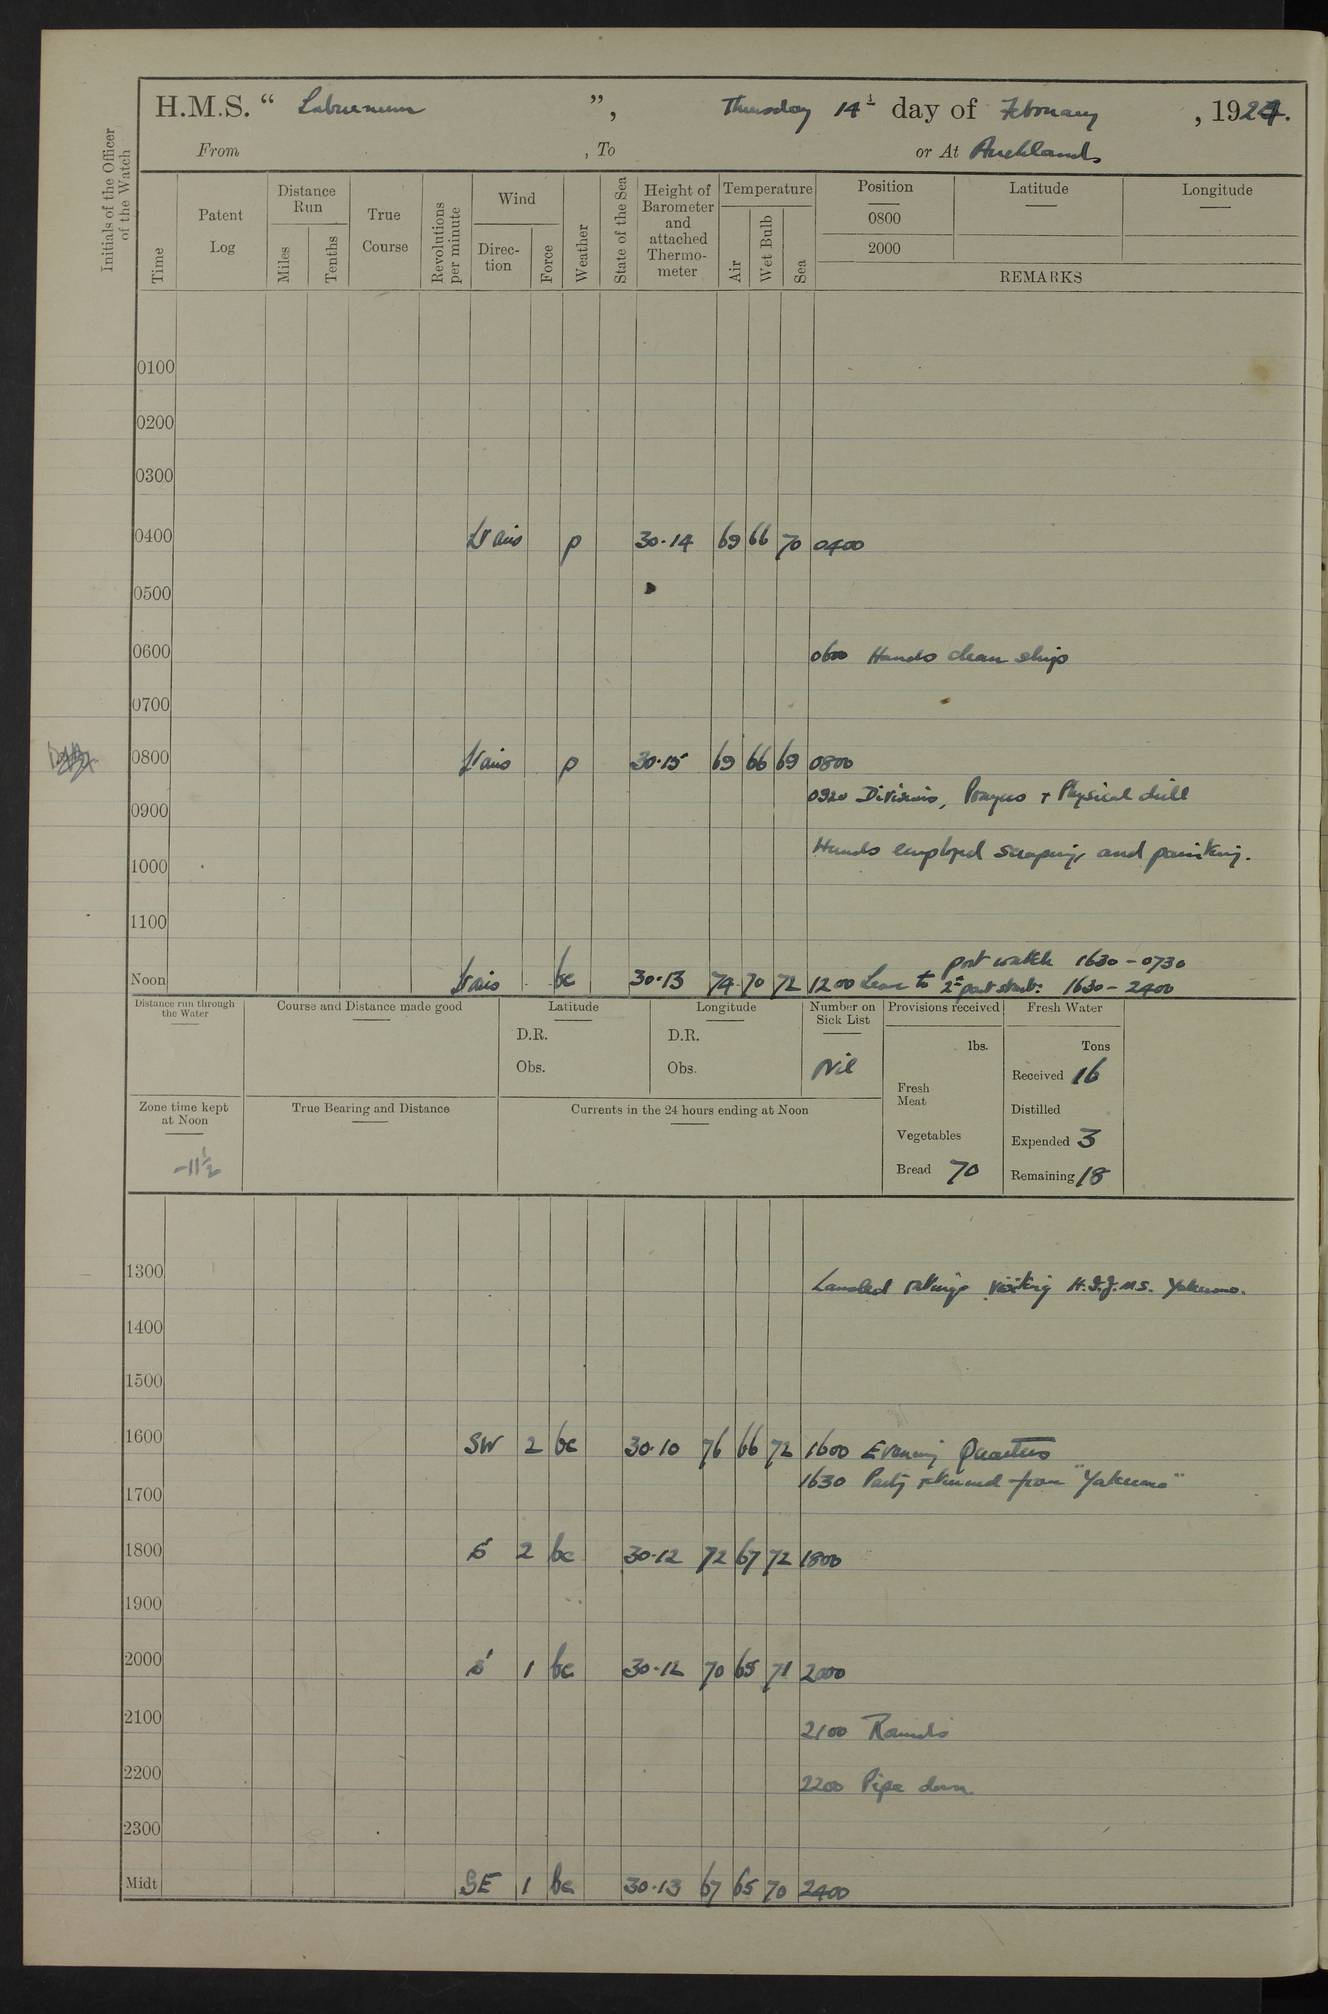 H.M.S. “ Laburnum ”, Thursday 14th day of February , 1924.
From , To or At Auckland
Initials of the Officer of the Watch
Time
Patent Log
Distance Run
Miles
Tenths
True Course
Revolutions per minute
Wind
Direction
Force
Weather
State of the Sea
Height of Barometer and attached Thermometer
Temperature
Air
Wet Bulb
Sea
Position
Latitude
Longitude
0800
2000
REMARKS
0100
0200
0300
0400 Lt airs p 30.14 69 66 70 0400
0500
0600 0600 Hands clean ship
0700
0800 Lt airs p 30.15 69 66 69 0800
0920 Divisions, Prayers + Physical drill
0900
Hands employed scraping and painting.
1000
1100
port watch 1630 - 0730
Noon Lt airs bc 30.13 74 70 72 1200 Leave to 2nd part starb: 1630 - 2400
Distance run through the Water
Course and Distance made good
Latitude
D.R.
Obs.
Longitude
D.R.
Obs.
Number on Sick List
Nil
Provisions received
lbs.
Fresh Meat
Vegetables
Bread 70
Fresh Water
Tons
Received 16
Distilled
Expended 3
Remaining 18
Zone time kept at Noon
-11½
True Bearing and Distance
Currents in the 24 hours ending at Noon
1300 Landed ratings visiting H.I.J.M.S. Yakumo.
1400
1500
1600 SW 2 bc 30.10 76 66 72 1600 Evening Quarters
1630 Party returned from "Yakumo"
1700
1800 S 2 bc 30.12 72 67 72 1800
1900
2000 S 1 bc 30.12 70 65 71 2000
2100 2100 Rounds
2200 2200 Pipe down
2300
Midt SE 1 bc 30.13 67 65 70 2400